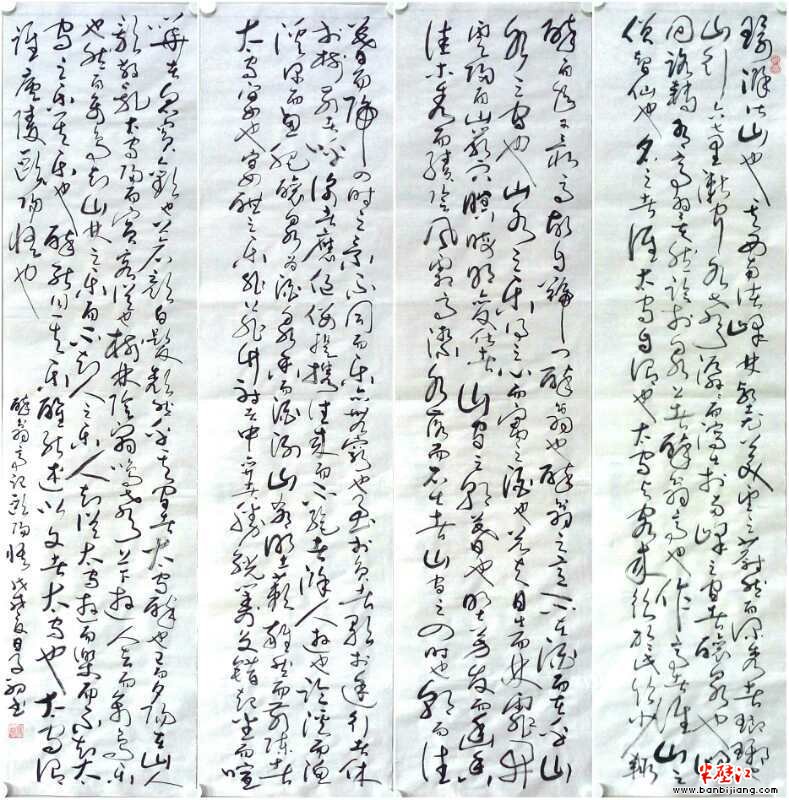 環滁皆山也其西南諸峰林壑尤美望之蔚然而深秀者琅琊也
山行六七里漸聞水聲潺潺而瀉出於兩峰之間者釀泉也峰
回路轉有亭翼然臨於泉上者醉翁亭也作亭者誰山之
僧智仙也名之者誰太守自謂也太守與客來飲於此飲少輒
醉而年又最高故自號曰醉翁也醉翁之意不在酒而在乎山
水之間也山水之樂得之心而寓之酒也若夫日出而林霏開
雲歸而岩穴暝晦明變化者山間之朝暮也野芳發而幽香
佳木秀而繁陰風霜高潔水落而石出者山間之四時也朝而往
暮而歸四時之景不同而樂亦無窮也至於負者歌於途行者休
於樹前者呼後者應傴僂提攜往來而不絕者滁人遊也臨溪而漁
溪深而魚肥釀泉為酒泉香而酒洌山肴野蔌雜然而前陳者
太守宴也宴酣之樂非絲非竹射者中弈者勝觥籌交錯起坐而喧
嘩者眾賓歡也蒼顏白髮頹然乎其間者太守醉也已而夕陽在山人
影散亂太守歸而賓客從也樹林陰翳鳴聲上下遊人去而禽鳥樂
也然而禽鳥知山林之樂而不知人之樂人知從太守遊而樂而不知太
守之樂其樂也醉能同其樂醒能述以文者太守也太守謂
誰廬陵歐陽修也
醉翁亭記歐陽修 戊戌夏日
半壁江
www.banbijiang.com